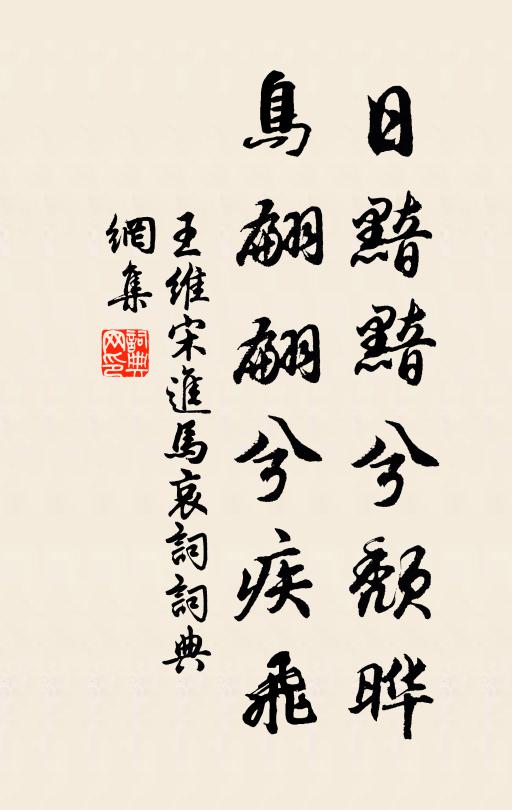 日黯黯兮頹曄
鳥翩翩兮疾飛
王維宋進馬哀詞詞典
網集
詞典
网印